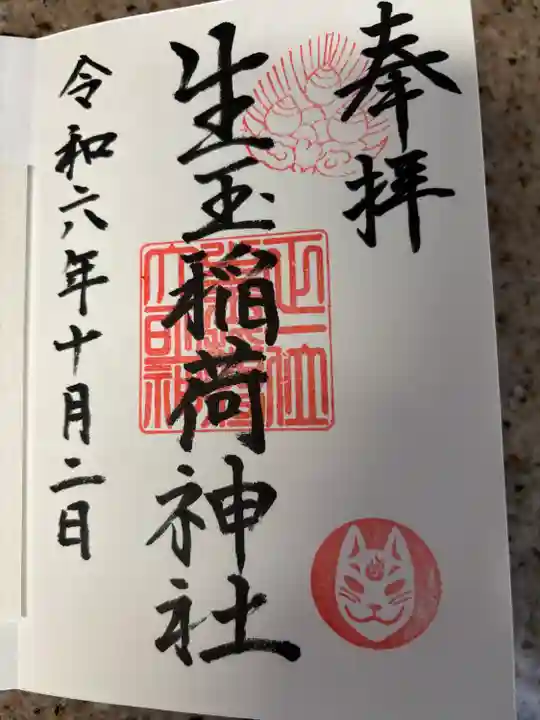 奉拝
生玉稲荷神社
令和六年十月二日
正一位